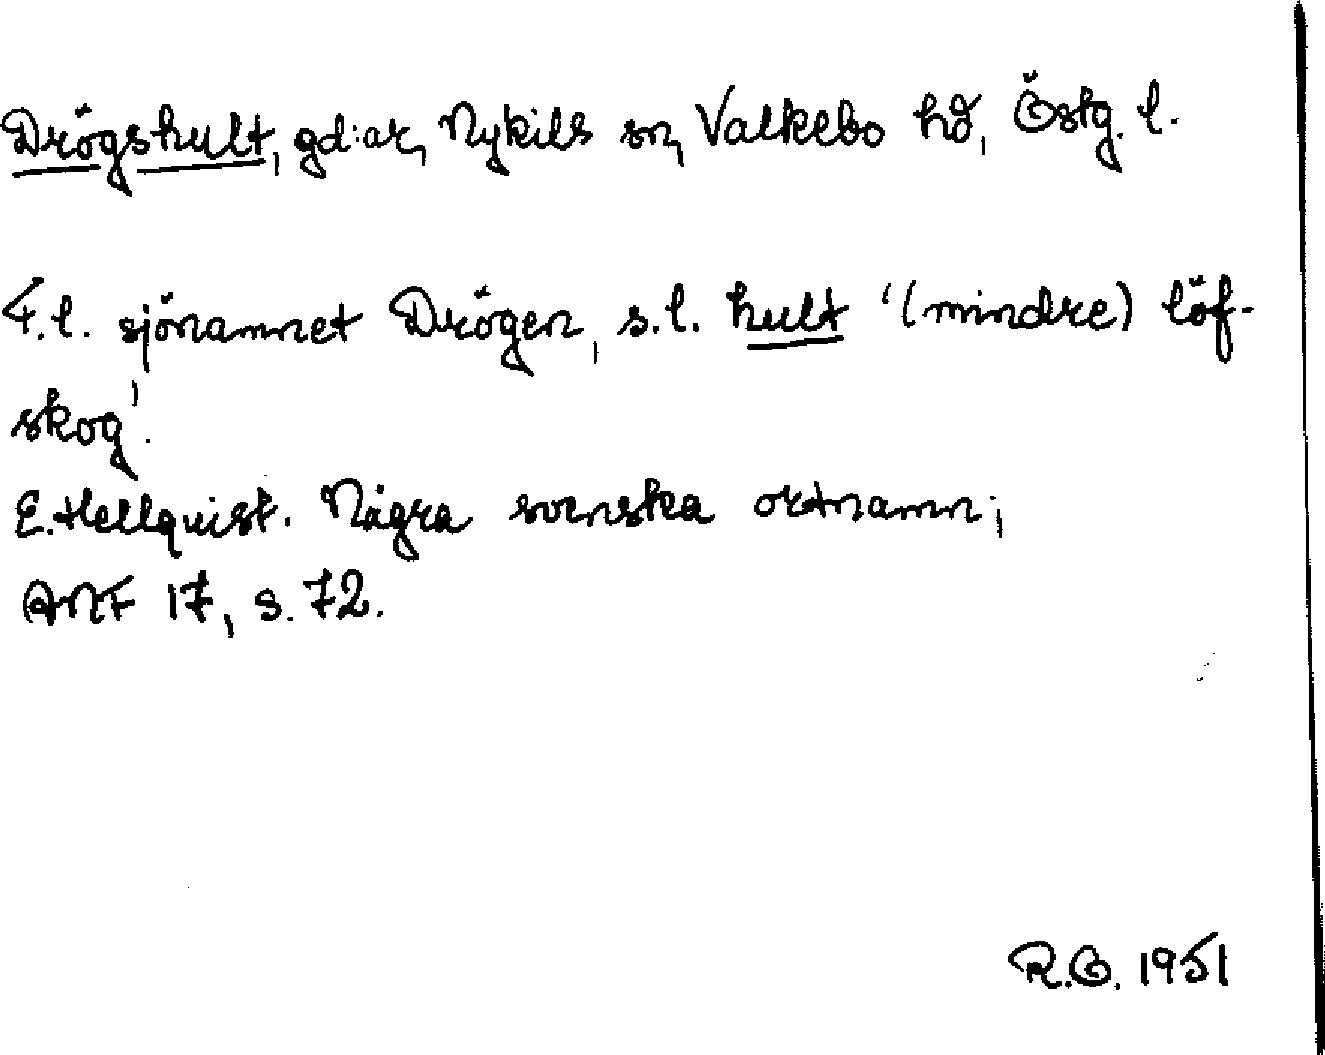 Drögshult, gd:ar, Nykils sn, Valkebo hd, Östg. l.
F.l. sjönamnet Drögen, s.l. hult '(mindre) löf-
skog'.
E. Hellquist. Några svenska ortnamn;
ANF 17, s. 72.
R.G. 1951